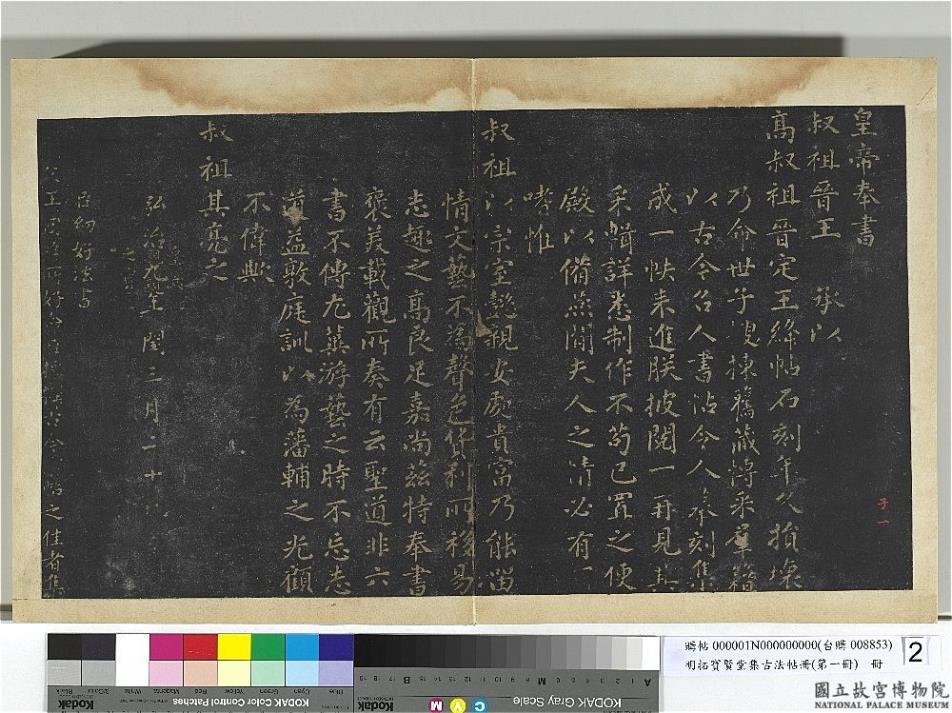 皇帝奉書
叔祖晉王　承以
高叔祖晉定王絳帖石刻年久損壞
乃命世子　揀舊藏博采羣籍
以古今名人書帖令人　奉刻集
成一帙来進朕披閱一再見其
采輯詳悉制作不苟已置之便
殿以備燕閒夫人之情必有
嗜惟
叔祖以宗室懿親安處貴富乃能留
情文藝不為聲色货利所移易
志趣之高良足嘉尚兹特奉書
褒美載觀所奏有云聖道非六
書不傳尤冀游藝之時不忘志
道益敦庭訓以為藩輔之光顧
不偉歟
叔祖其亮之
弘治九年閏三月二十
臣幼好法書
父王
之佳者集
子一
贈帖 000001N000000000(台贈 008853)
明拓寶賢堂集古法帖冊(第一冊)　冊
2
國立故宮博物院
NATIONAL PALACE MUSEUM
Black
3/Color
White
Magenta
Red
Yellow
Green
Cyan
Blue
Kodak
KODAK Color Control Patches
KODAK Gray Scale
C Y M
Kodak